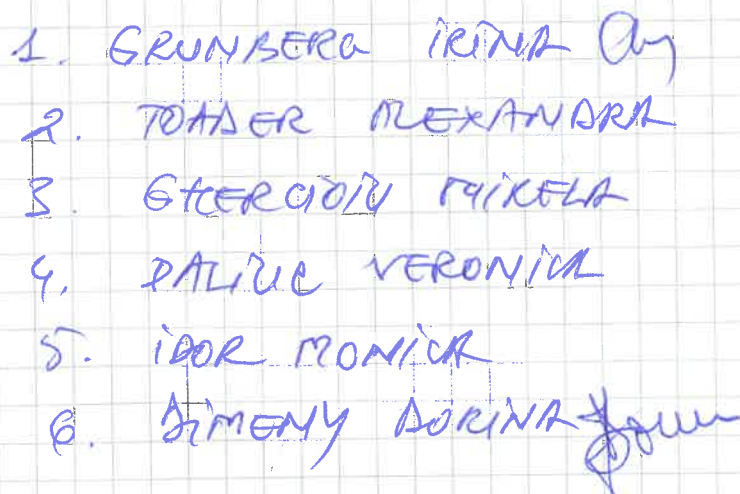 1. GRUNBERG IRINA
2. TOADER ALEXANDRA
3. GHERGHOIU MIHAELA
4. DALIUC VERONICA
5. IDOR MONICA
6. DIMENY DORINA